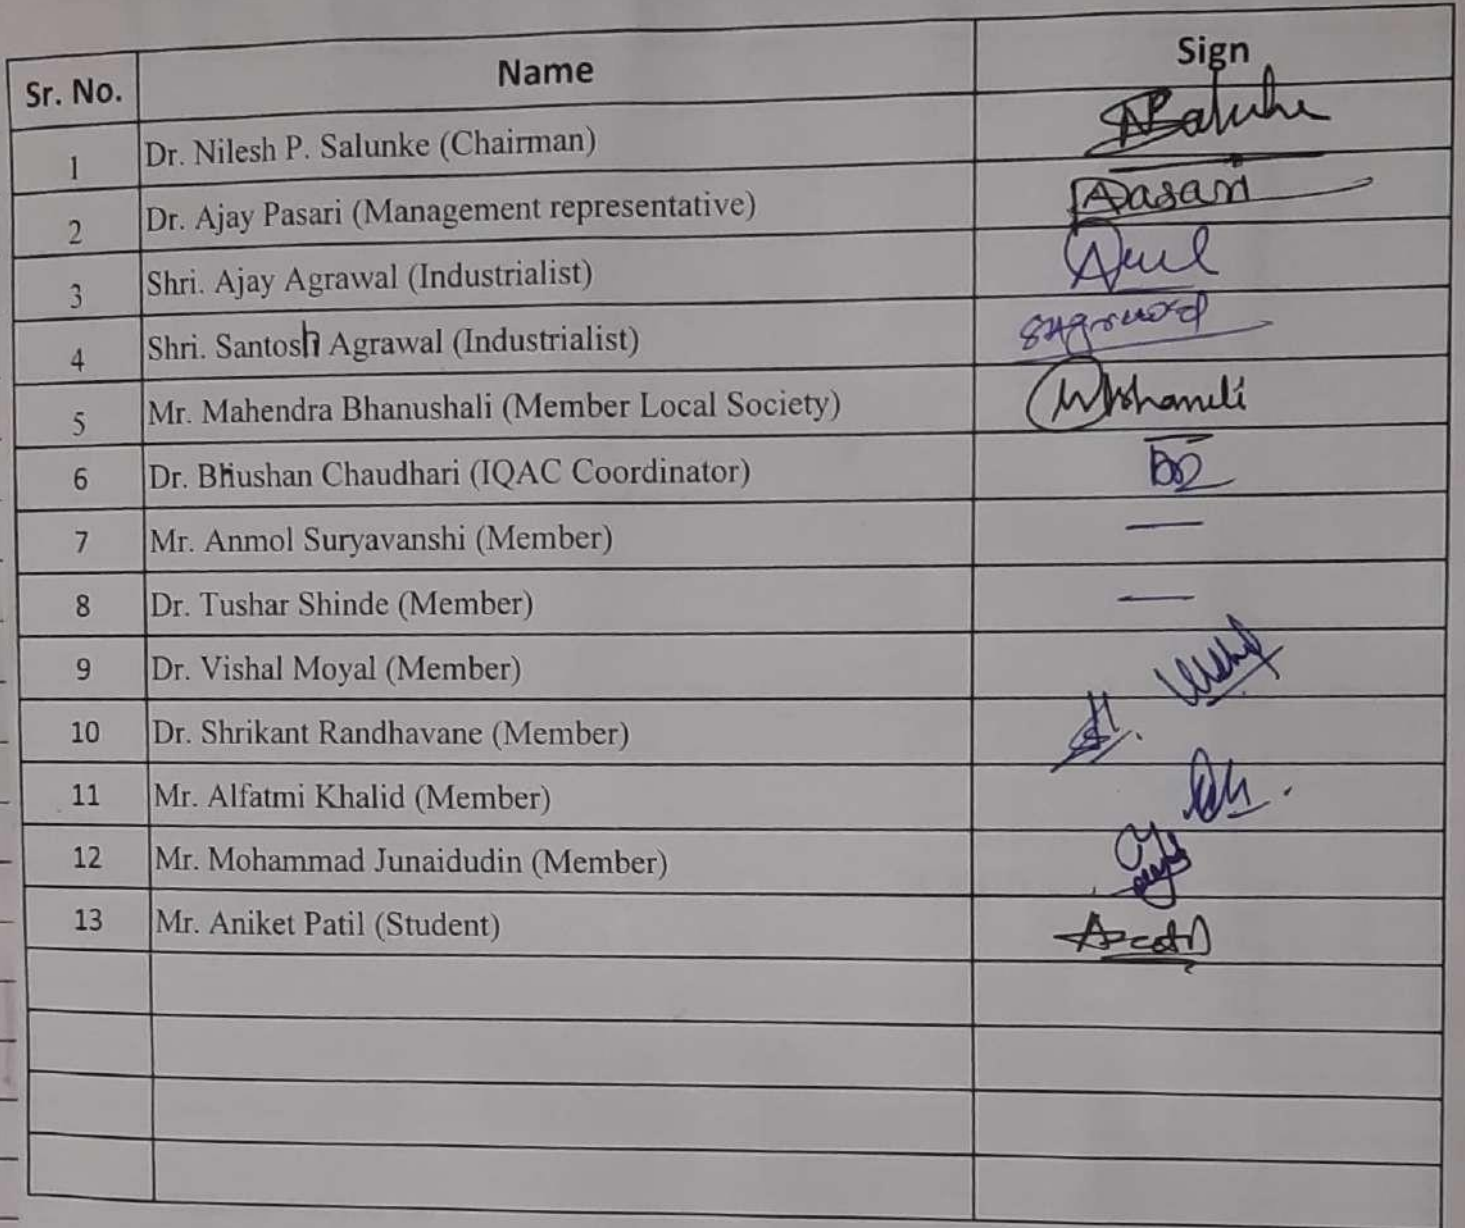 Sr. No. Name Sign
1 Dr. Nilesh P. Salunke (Chairman)
2 Dr. Ajay Pasari (Management representative) Pasari
3 Shri. Ajay Agrawal (Industrialist)
4 Shri. Santosh Agrawal (Industrialist)
5 Mr. Mahendra Bhanushali (Member Local Society)
6 Dr. Bhushan Chaudhari (IQAC Coordinator)
7 Mr. Anmol Suryavanshi (Member) —
8 Dr. Tushar Shinde (Member) —
9 Dr. Vishal Moyal (Member)
10 Dr. Shrikant Randhavane (Member)
11 Mr. Alfatmi Khalid (Member)
12 Mr. Mohammad Junaidudin (Member)
13 Mr. Aniket Patil (Student)